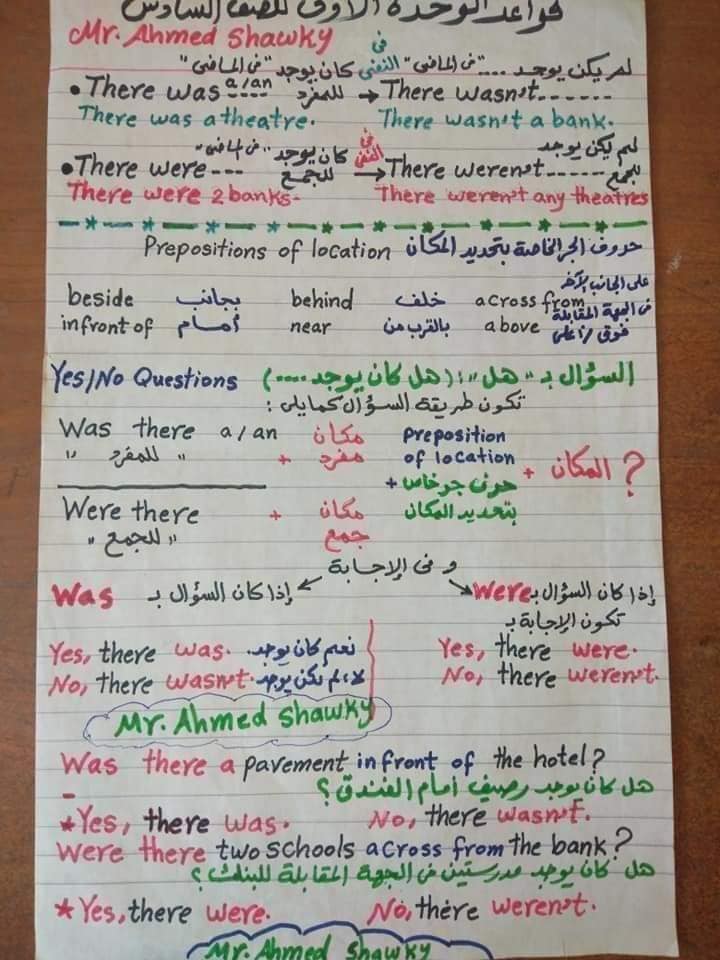 قواعد الوحدة الأولى للصف السادس
Mr. Ahmed Shawky
لم يكن يوجد .... "فى الماضى" فى النفى كان يوجد "فى الماضى"
• There was a/an ---- للمفرد → There wasn't ------
There was a theatre. There wasn't a bank.
كان يوجد "فى الماضى" فى النفى لم يكن يوجد
• There were --- للجمع → There weren't ------ للجمع
There were 2 banks. There weren't any theatres
Prepositions of location حروف الجر الخاصة بتحديد المكان
على الجانب الآخر
beside بجانب behind خلف across from فى الجهة المقابلة
infront of أمام near بالقرب من above فوق / أعلى
Yes/No Questions السؤال بـ "هل" : (هل كان يوجد ....)
تكون طريقة السؤال كمايلى :
Was there a/an مكان preposition
" للمفرد " + مفرد of location + المكان ?
حرف جر خاص +
Were there + مكان بتحديد المكان
" للجمع " جمع
و فى الإجابة
Was إذا كان السؤال بـ إذا كان السؤال بـ Were
تكون الإجابة بـ
Yes, there was. نعم كان يوجد Yes, there were.
No, there wasn't. لا، لم يكن يوجد No, there weren't.
Mr. Ahmed Shawky
Was there a pavement infront of the hotel?
هل كان يوجد رصيف أمام الفندق ؟
* Yes, there was. No, there wasn't.
Were there two schools across from the bank?
هل كان يوجد مدرستين فى الجهة المقابلة للبنك ؟
* Yes, there were. No, there weren't.
Mr. Ahmed Shawky